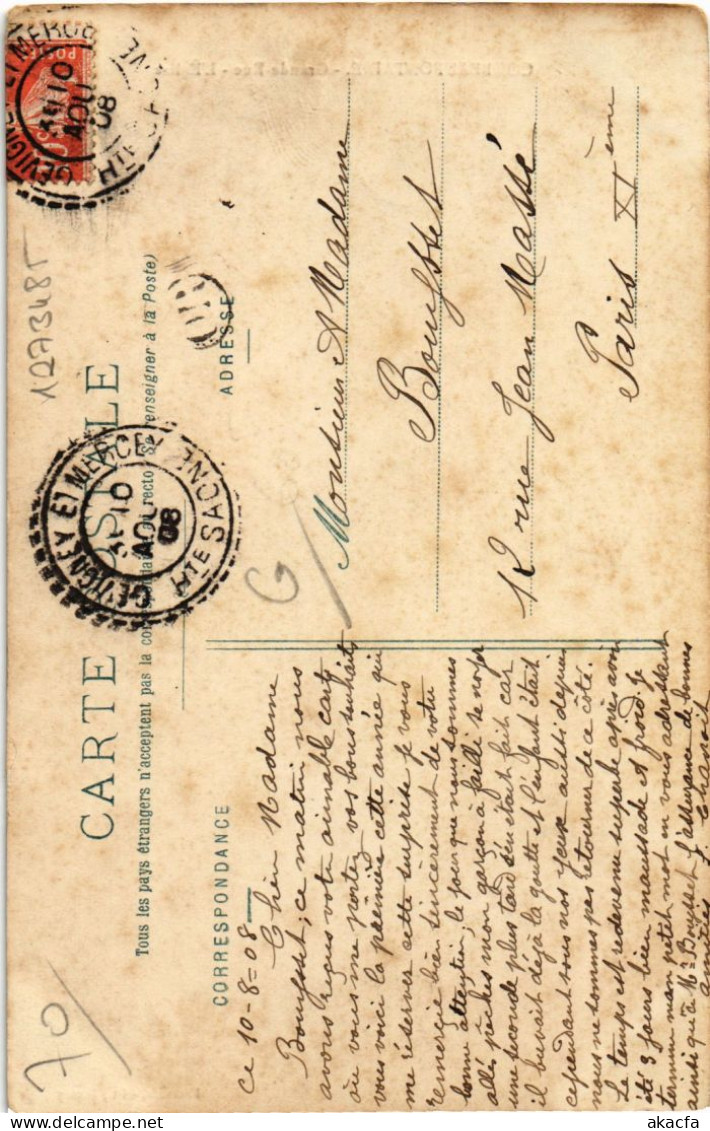 CARTE POSTALE
Tous les pays étrangers n'acceptent pas la correspondance au recto (Se renseigner à la Poste)
CORRESPONDANCE
ADRESSE
ce 10-8=08
Chère Madame
Bouysset; ce matin nous
avons reçus votre aimable carte
où vous me portez vos bons souhaits
vous voici la première cette année qui
me réserves cette surprise je vous
remercie bien sincèrement de votre
bonne attention, le jour que nous sommes
allés pêches mon garçon à failli se noyer
une seconde plus tard s'en était fait car
il buvait déjà la goutte et l'enfant était
cependant sous nos yeux aussi depuis
nous ne sommes pas retourner de ce côté.
Le temps est redevenu superbe après avoir
été 3 jours bien maussade et froid. Je
termine mon petit mot en vous adressant
ainsi qu'à Mr Bouysset l'assurance de bonnes
amitiés
Monsieur & Madame
Bouysset
12 rue Jean Macé
Paris XI ème
GEVIGNEY ET MERCEY
10
AOU
08
Hte SAONE
GEVIGNEY ET MERCEY
10
AOUT
08
Hte SAONE
POSTES
1273485
G
70
akacfa